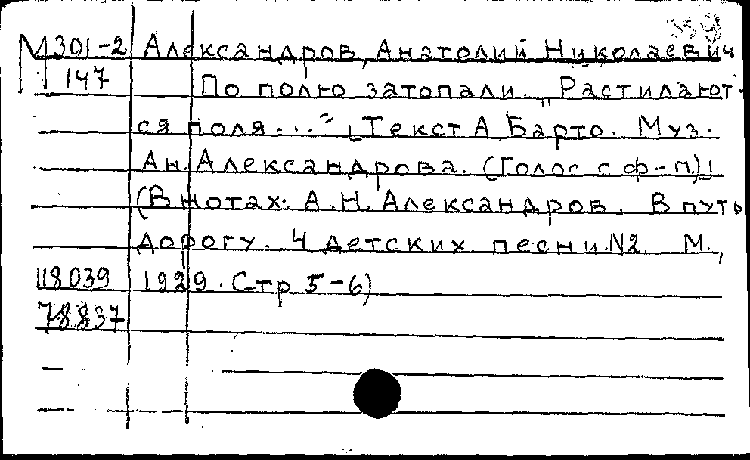 М301-2 Александров, Анатолий Николаевич
147 По полю затопали. „Растилают-
ся поля...“ [Текст А Барто. Муз.
Ан. Александрова. (Голос с ф-п)]
(В нотах: А.Н. Александров. В путь
дорогу. 4 детских песни №2 М.,
118039 1929. Стр 5-6)
78837